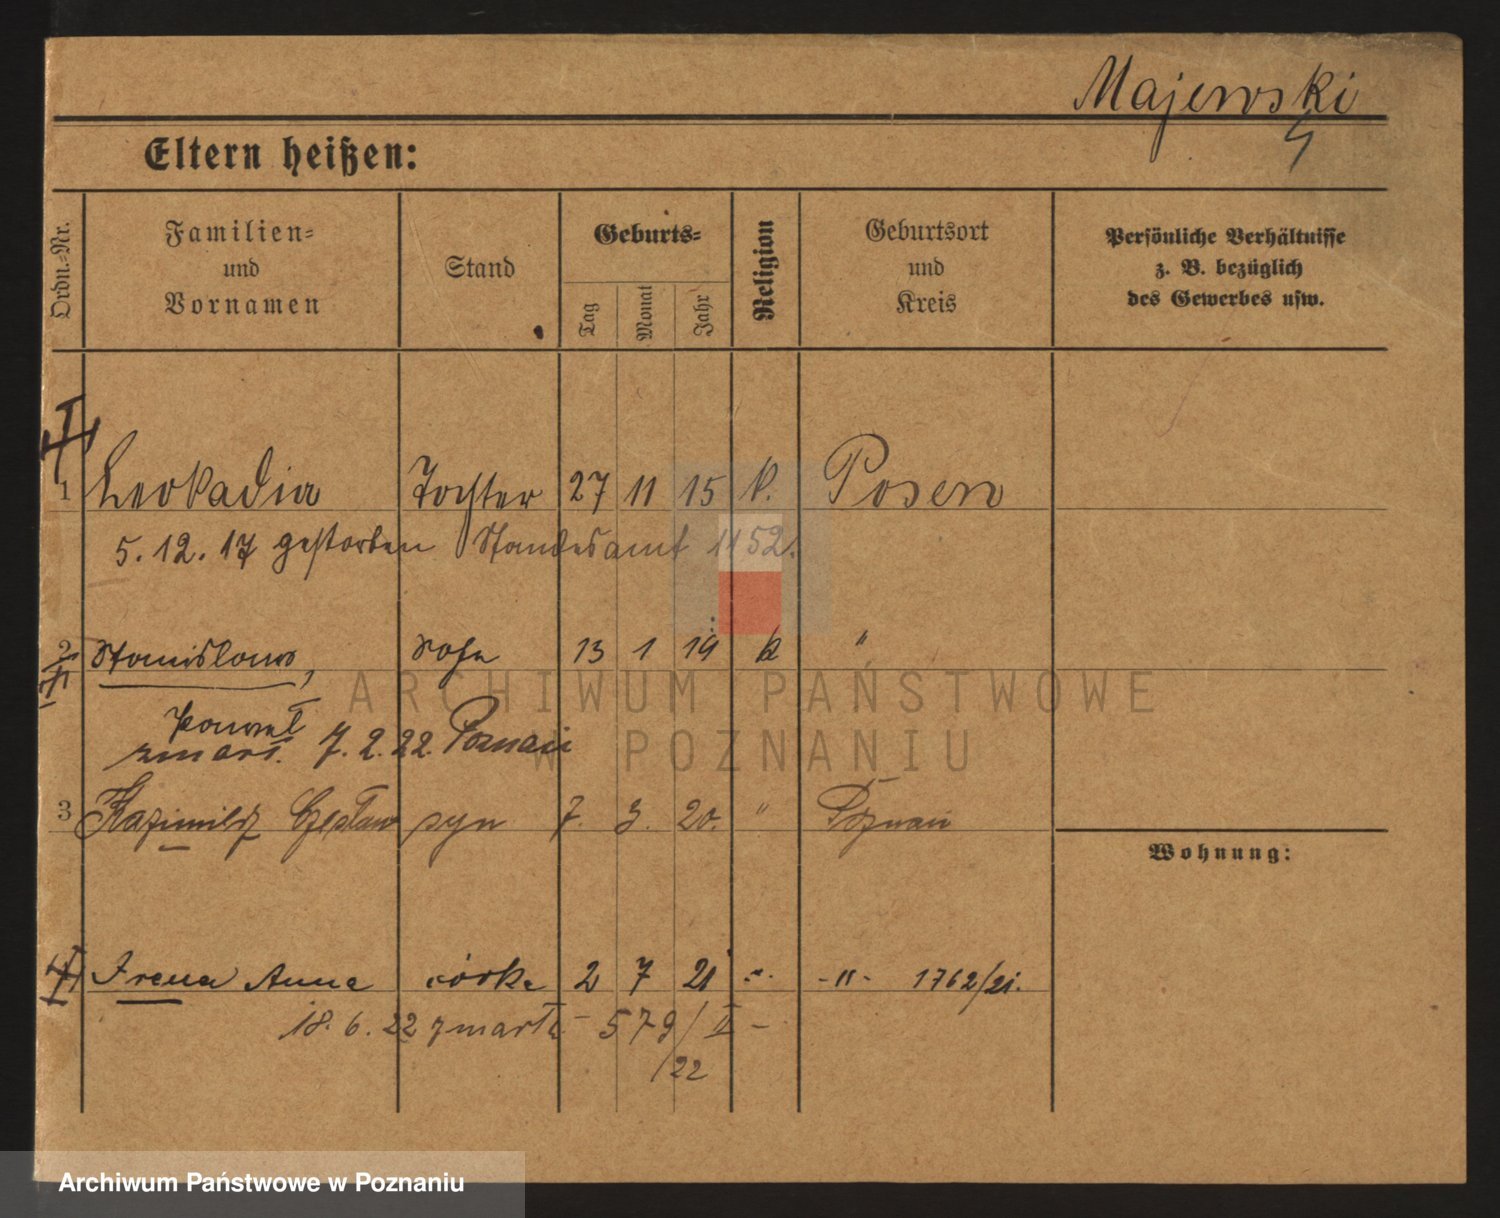 Majewski
Eltern heißen:
Ordn.-Nr.
Familien-
und
Vornamen
Stand
Geburts-
Tag
Monat
Jahr
Religion
Geburtsort
und
Kreis
Persönliche Verhältnisse
z. B. bezüglich
des Gewerbes usw.
1 Leokadia Tochter 27 11 15 k. Posen
5. 12. 17 gestorben Standesamt 1152.
2 Stanislaus, Sohn 13 1 19 k "
Paweł
zmarł. 7. 2. 22. Poznań
3 Kazimierz Czesław syn 7. 3. 20. " Poznań
Wohnung:
Irena Anna córka 2 7 21 -"- -"- 1762/21.
18. 6. 22 zmarła - 579/II -
/22
ARCHIWUM PAŃSTWOWE
W POZNANIU
Archiwum Państwowe w Poznaniu